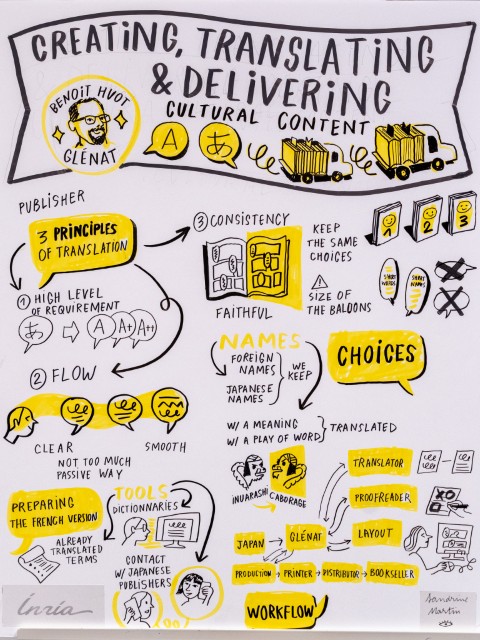 CREATING, TRANSLATING
& DELIVERING
CULTURAL CONTENT
BENOIT HUOT
GLÉNAT
A
あ
PUBLISHER
3 PRINCIPLES
OF TRANSLATION
① HIGH LEVEL
OF REQUIREMENT
あ
A
A+
A++
② FLOW
CLEAR
SMOOTH
NOT TOO MUCH
PASSIVE WAY
③ CONSISTENCY
FAITHFUL
KEEP
THE SAME
CHOICES
1
2
3
SIZE OF
THE BALOONS
SHORT
WORDS
SHORT
NAMES
NAMES
FOREIGN
NAMES
JAPANESE
NAMES
WE
KEEP
CHOICES
W/ A MEANING
W/ A PLAY OF WORD
TRANSLATED
INUARASHI
CABORAGE
PREPARING
THE FRENCH VERSION
ALREADY
TRANSLATED
TERMS
TOOLS
DICTIONNARIES
CONTACT
W/ JAPANESE
PUBLISHERS
TRANSLATOR
PROOFREADER
LAYOUT
JAPAN
GLÉNAT
PRODUCTION
PRINTER
DISTRIBUTOR
BOOKSELLER
WORKFLOW
Inria
Sandrine
Martin